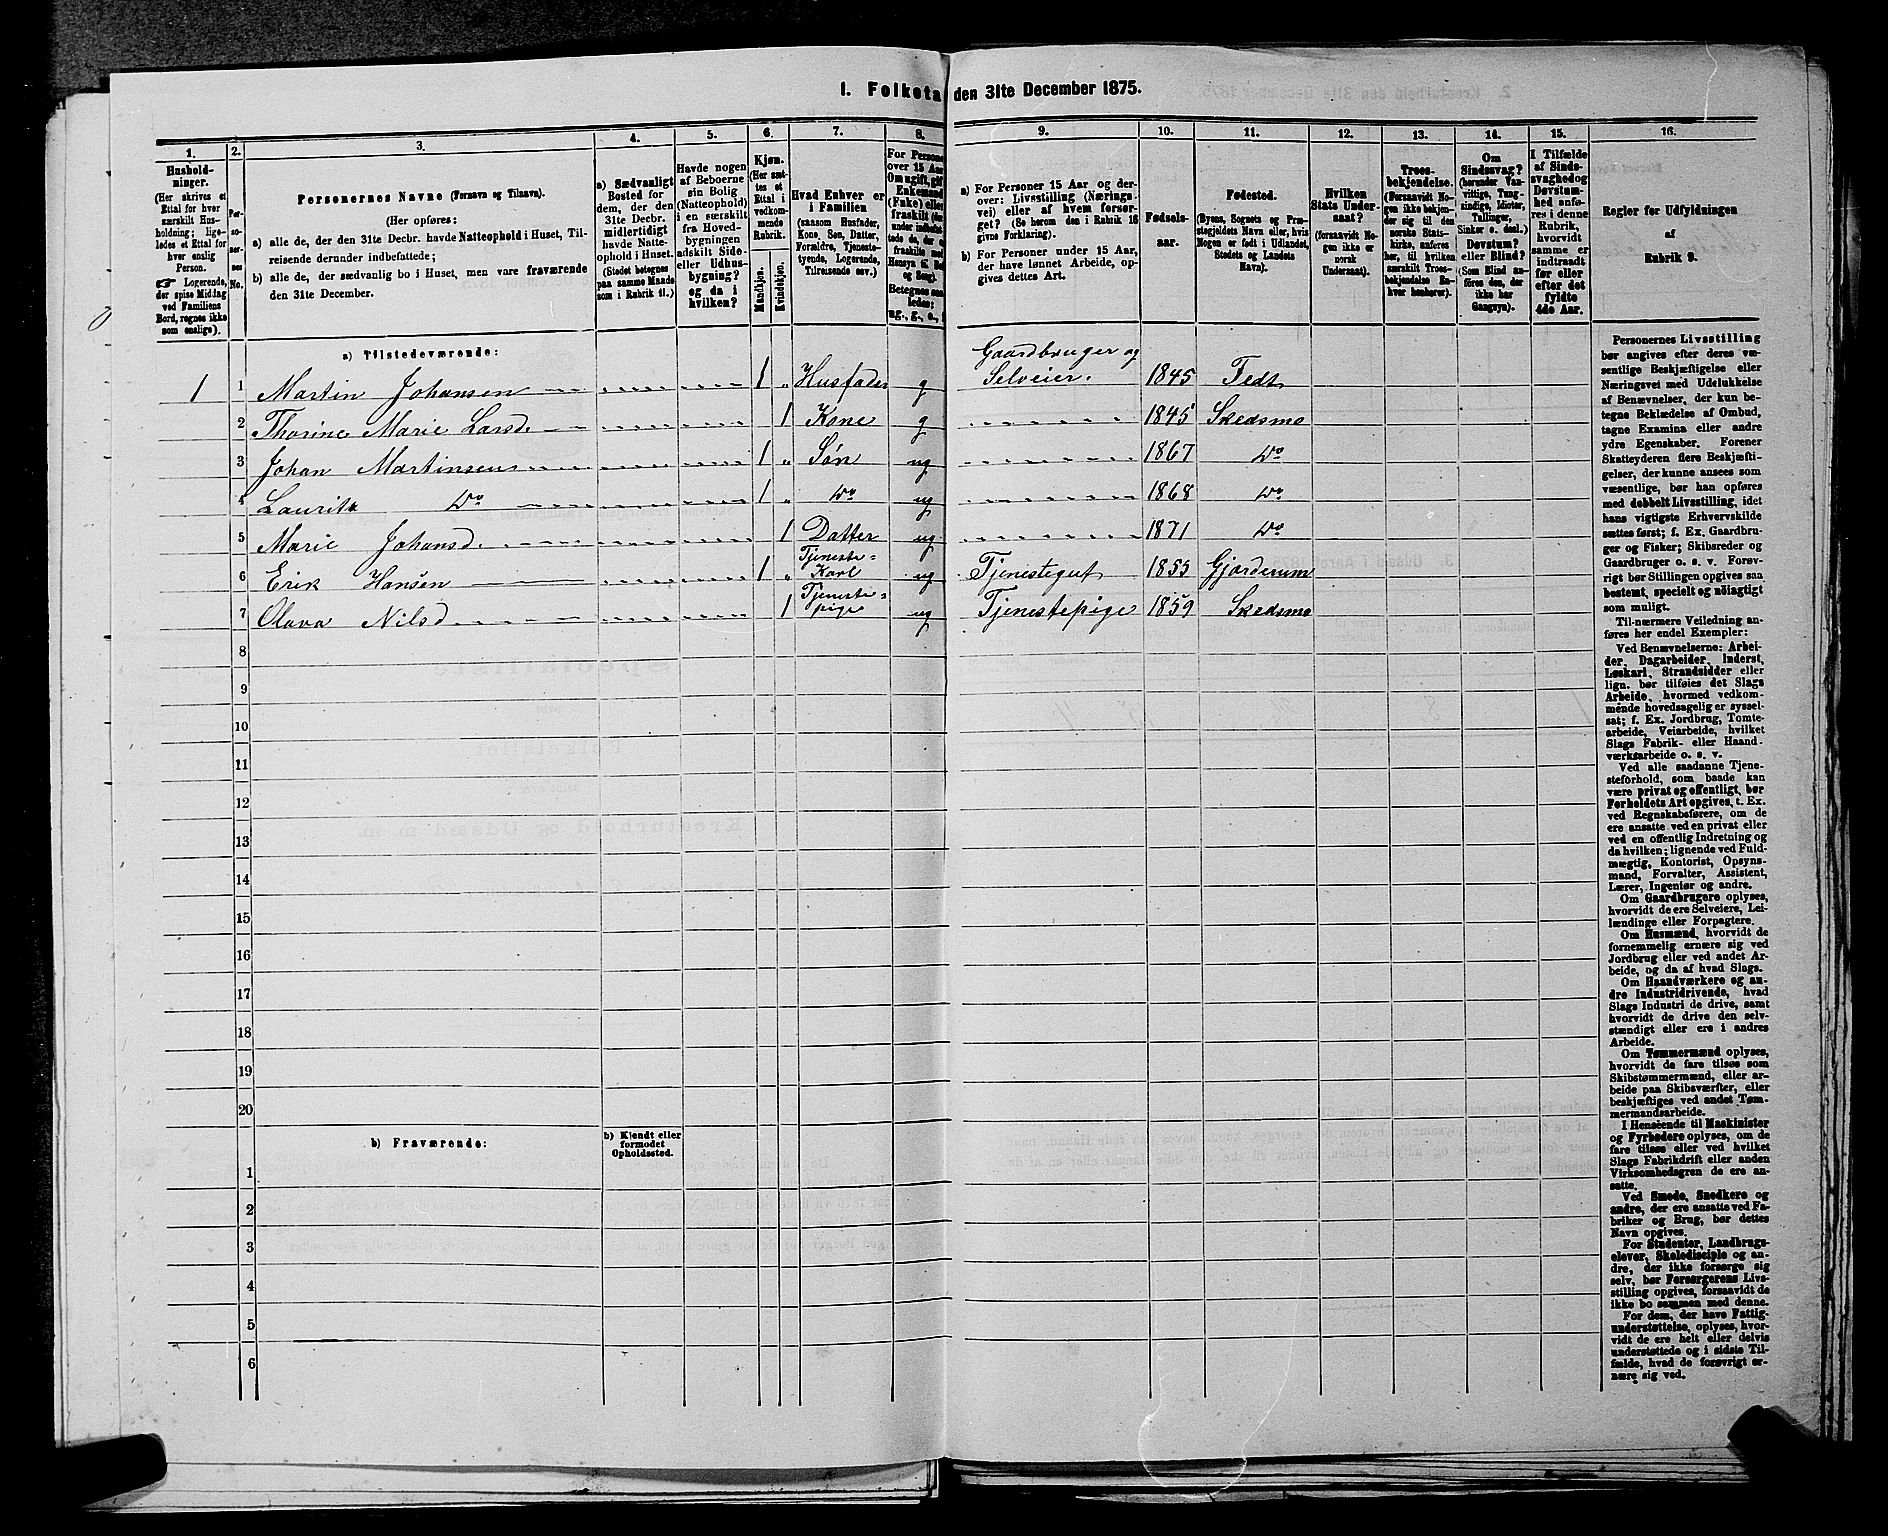 I. Folketæ den 31te December 1875.
1.
2.
3.
4.
5.
6.
7.
8.
9.
10.
11.
12.
13.
14.
15.
16.
Hushold-
ninger.
(Her skrives et
Ettal for hver
særskilt Hus-
holdning; lige-
ledes et Ettal for
hver enslig
Person.
☞ Logerende,
der spise Middag
ved Familiens
Bord, regnes ikke
som enslige).
Per-
so-
ner-
nes
No.
Personernes Navne (Fornavn og Tilnavn).
(Her opføres:
a) alle de, der den 31te Decbr. havde Natteophold i Huset, Til-
reisende derunder indbefattede;
b) alle de, der sædvanlig bo i Huset, men vare fraværende
den 31te December.
a) Sædvanligt
Bosted for
dem, der den
31te Decbr.
midlertidigt
havde Natte-
ophold i Huset.
(Stedet betegnes
paa samme Maade
som i Rubrik 11.)
Havde nogen
af Beboerne
sin Bolig
(Natteophold)
i en særskilt
fra Hoved-
bygningen
adskilt Side-
eller Udhus-
bygning?
og da i
hvilken?
Kjøn.
(Her sæt-
tes et
Ettal i
vedkom-
mende
Rubrik.
Mandkjøn.
Kvindekjøn.
Hvad Enhver er
i Familien
(saasom Husfader,
Kone, Søn, Datter,
Forældre, Tjeneste-
tyende, Logerende,
Tilreisende osv.)
For Persone
over 15 Aar
Enkemand
(Enke) eller
fraskilt
Betegnes saa-
ledes:
ug., g., e.,
a) For Personer 15 Aar og der-
over: Livsstilling (Nærings-
vei) eller af hvem forsør-
get? (Se herom den i Rubrik 16
givne Forklaring).
b) For Personer under 15 Aar,
der have lønnet Arbeide, op-
gives dettes Art.
Fødsels-
aar.
Fødested.
(Byens, Sognets og Præ-
stegjeldets Navn eller, hvis
Nogen er født i Udlandet,
Stedets og Landets
Navn).
Hvilken
Stats Under-
saat?
(foraavidt No-
gen ikke er
norsk
Undersaat).
Troes-
bekjendelse.
(Forsaavidt No-
gen ikke bekjen-
der sig til den
norske Stats-
kirke, anføres
her, til hvilken
særskilt Troes-
bekjendelse En-
hver henhører).
Om
Sindssvag?
(herunder Van-
vittige, Tung-
sindige, Idioter,
Tullinger,
Sinker o. desl.)
Døvstum?
eller Blind?
(Som Blind an-
føres den, der
ikke har
Gangsyn).
I Tilfælde
af Sinds-
svaghed og
Døvstum-
hed anfø-
res i denne
Rubrik,
hvorvidt
samme er
indtraadt
før eller
efter det
fyldte
4de Aar.
Regler for Udfyldningen
af
Rubrik 9.
a) Tilstedeværende:
1 1 Martin Johansen 1 „ Husfader g Gaardbruger og
Selveier. 1845 Fedt
2 Thorine Marie Larsd. 1 Kone g 1845 Skedsmo
3 Johan Martinsen 1 „ Søn ug 1867 Do
4 Lauritz Do 1 „ Do ug 1868 Do
5 Marie Johansd. 1 Datter ug 1871 Do
6 Erik Hansen 1 „ Tjeneste-
Karl ug Tjenestegut 1855 Gjorderum
7 Olava Nilsd. 1 Tjeneste-
pige ug Tjenestepige 1859 Skedsmo
8
9
10
11
12
13
14
15
16
17
18
19
20
b) Fraværende:
b) Kjendt eller
formodet
Opholdssted.
1
2
3
4
5
6
Personernes Livsstilling
bør angives efter deres væ-
sentlige Beskjæftigelse eller
Næringsvei med Udelukkelse
af Benævnelser, der kun be-
tegne Beklædelse af Ombud,
tagne Examina eller andre
ydre Egenskaber. Forener
Skatteyderen flere Beskjæfti-
gelser, der kunne ansees som
væsentlige, bør han opføres
med dobbelt Livsstilling, idet
hans vigtigste Erhvervskilde
sættes først; f. Ex. Gaardbru-
ger og Fisker; Skibsreder og
Gaardbruger o. s. v. Forøv-
rigt bør Stillingen opgives saa
bestemt, specielt og nøiagtigt
som muligt.
Til nærmere Veiledning an-
føres her endel Exempler:
Ved Benævnelserne: Arbei-
der, Dagarbeider, Inderst,
Løskarl, Strandsidder eller
lign. bør tilføies det Slags
Arbeide, hvormed vedkom-
mende hovedsagelig er syssel-
sat; f. Ex. Jordbrug, Tomte-
arbeide, Veiarbeide, hvilket
Slags Fabrik- eller Haand-
værksarbeide o. s. v.
Ved alle saadanne Tjene-
steforhold, som baade kan
være privat og offentligt, bør
Forholdets Art opgives, t. Ex.
ved Regnskabsførere, om de
ere ansatte ved en privat eller
ved en offentlig Indretning og
da hvilken; lignende ved Fuld-
mægtig, Kontorist, Opsyns-
mand, Forvalter, Assistent,
Lærer, Ingeniør og andre.
Om Gaardbrugere oplyses,
hvorvidt de ere Selveiere, Lei-
lændinge eller Forpagtere.
Om Husmænd, hvorvidt de
fornemmelig ernære sig ved
Jordbrug eller ved andet Ar-
beide, og da af hvad Slags.
Om Haandværkere og an-
dre Industridrivende, hvad
Slags Industri de drive, samt
hvorvidt de drive den selv-
stændigt eller ere i andres
Arbeide.
Om Tømmermænd oplyses,
hvorvidt de fare tilsøs som
Skibstømmermænd, eller ar-
beide paa Skibsværfter, eller
beskjæftiges ved andet Tøm-
mermandsarbeide.
I Henseende til Maskinister
og Fyrbødere oplyses, om de
fare tilsøs eller ved hvilket
Slags Fabrikdrift eller anden
Virksomhedsgren de ere an-
satte.
Ved Smede, Snedkere og
andre, der ere ansatte ved Fa-
briker og Brug, bør dettes
Navn opgives.
For Studenter, Landbrugs-
elever, Skoledisciple og an-
dre, der ikke forsørge sig
selv, bør Forsørgerens Livs-
stilling opgives, forsaavidt de
ikke bo sammen med denne.
For dem, der have Fattig-
understøttelse, oplyses, hvor-
vidt de ere helt eller delvis
understøttede og i sidste Til-
fælde, hvad de forøvrigt er-
nære sig ved.